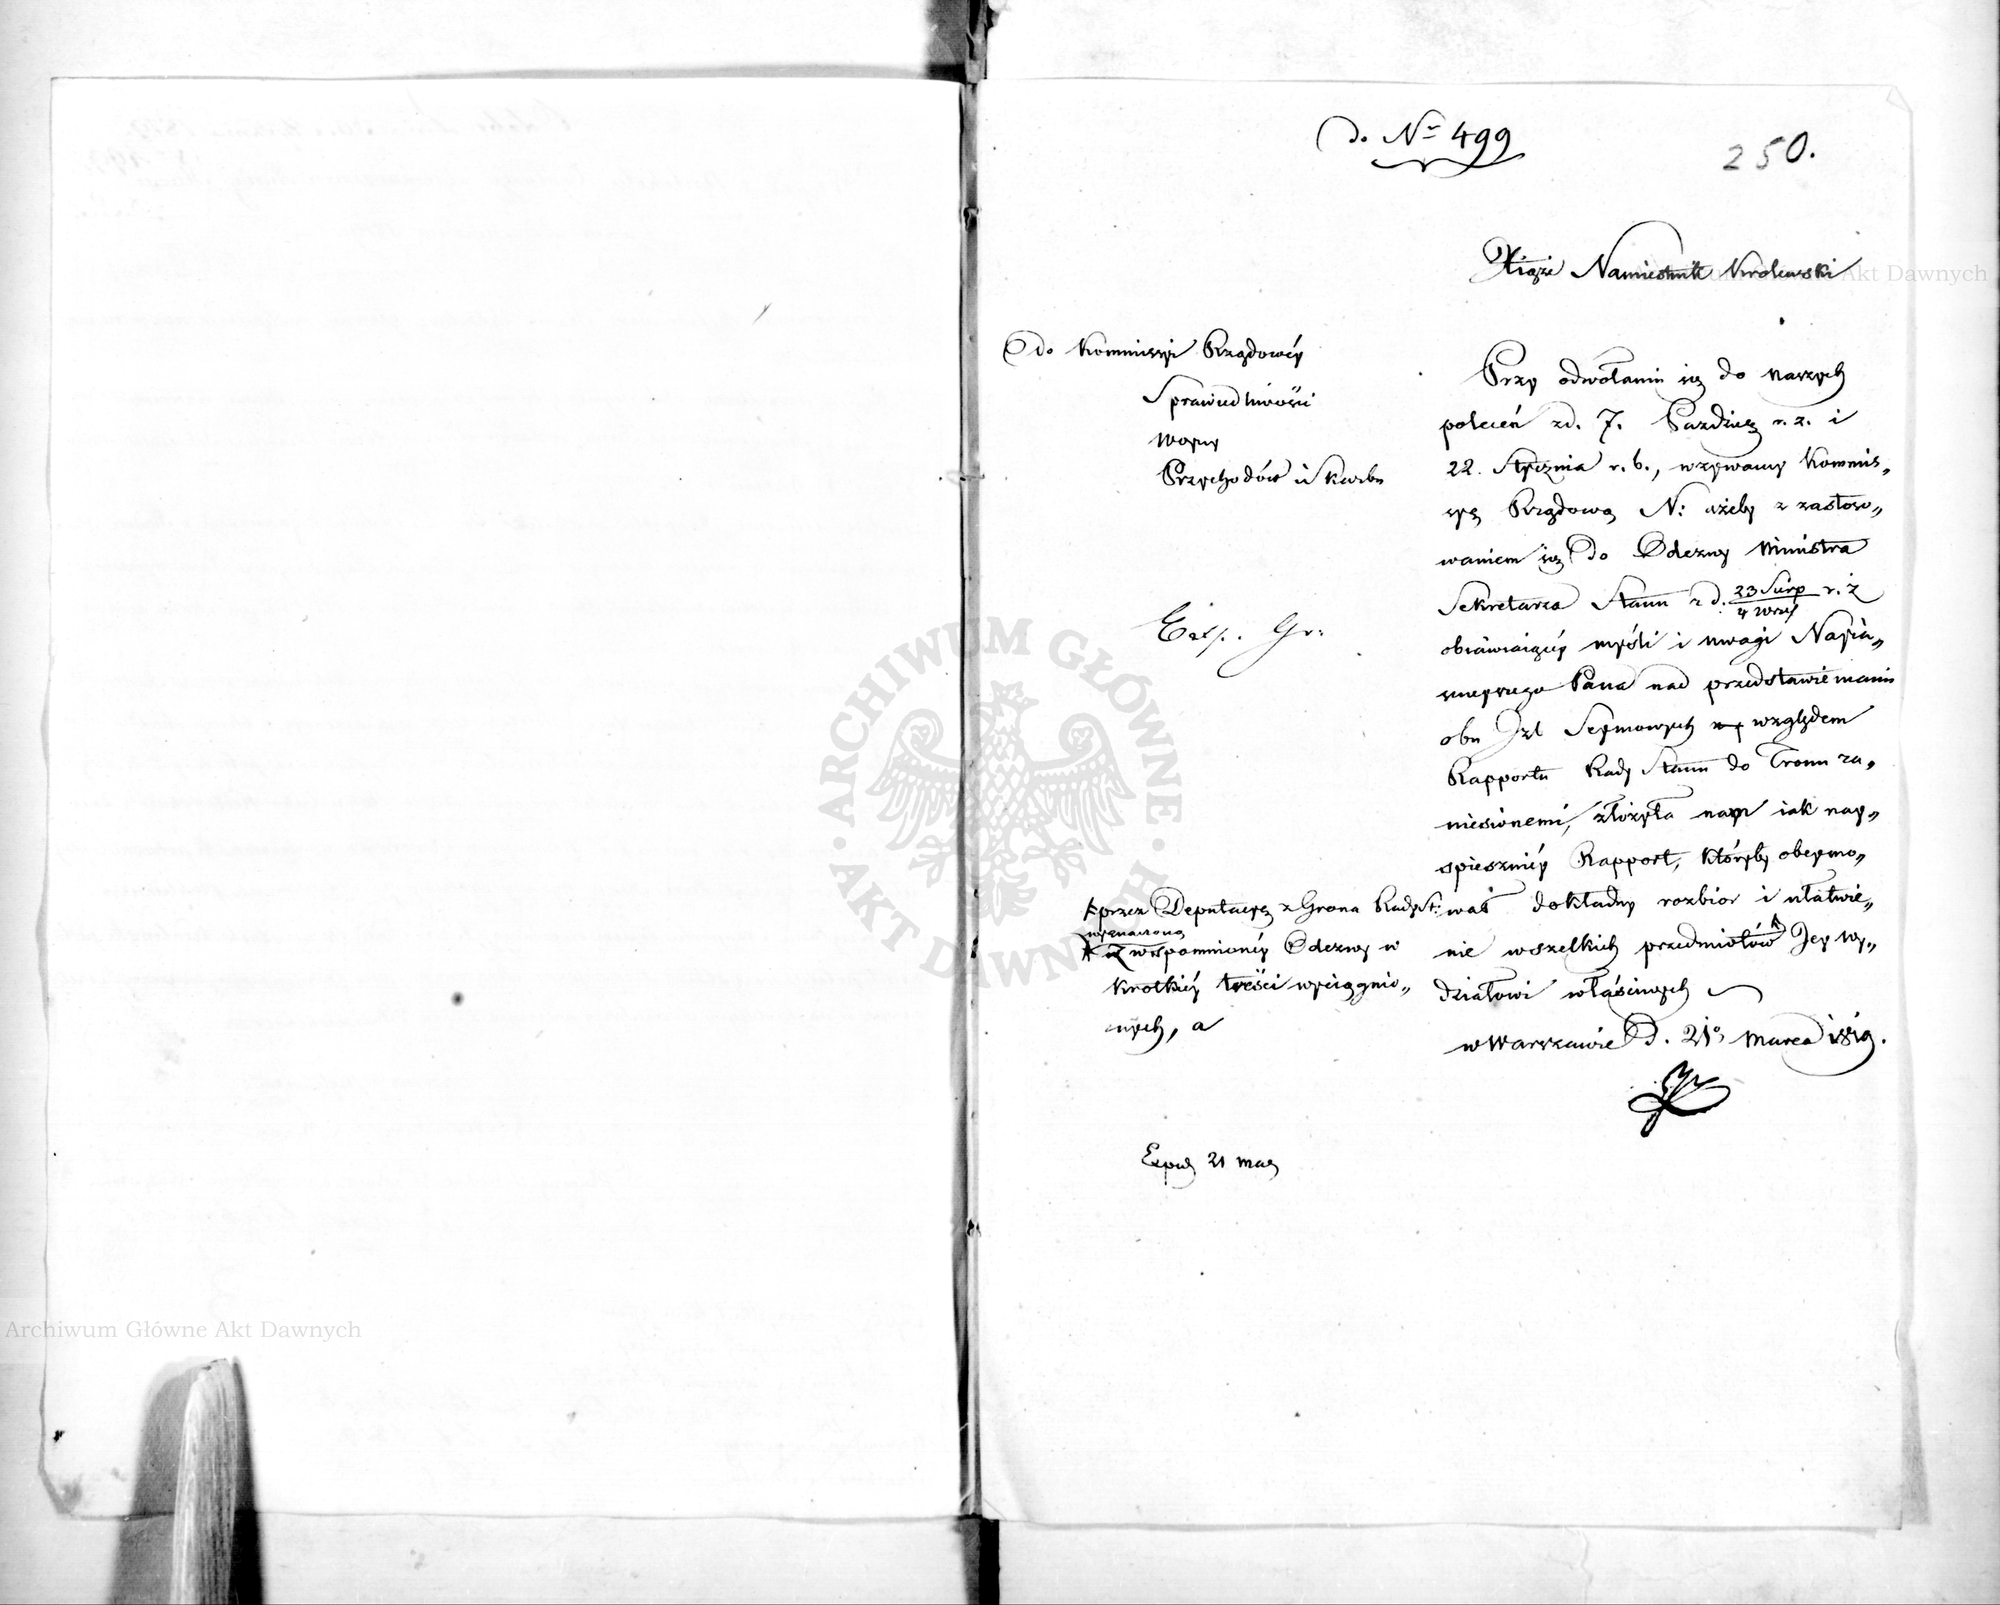 do Nr 499
250.
Xiąże Namiestnik Krolewski
do Kommissyi Rządowéy
Sprawiedliwości
Woyny
Przychodów i Skarbu
Przy odwołaniu się do naszych
poleceń z d. 7. Paźdier r. z. i
22. Stycznia r. b., wzywamy Kommis„
syą Rządową N: ażeby z zastoso„
waniem się do Odezwy Ministra
Sekretarza Stanu z d. 23 Sierp / 4 Wrześ r. z
obiawiaiącéy myśli i uwagi Nayia„
śnieyszego Pana nad przedstawieniami
obu Izb Seymowych względem
Rapportu Rady Stanu do Tronu za„
niesionemi, złożyła nam iak nay„
spieszniéy Rapport, któryby obeymo„
wał dokładny rozbiór i ułatwie„
nie wszelkich przedmiotów Jey wy„
działowi właściwych
w Warszawie d. 21 Marca 1819.
Exp. Gr:
przez Deputacyą z Grona Rady St:
wyznaczoną
z wspomnionéy Odezwy w
krotkiéy treści wyciągnio„
nych, a
Exped 21 Mar
ARCHIWUM GŁÓWNE AKT DAWNYCH
Archiwum Główne Akt Dawnych
Archiwum Główne Akt Dawnych